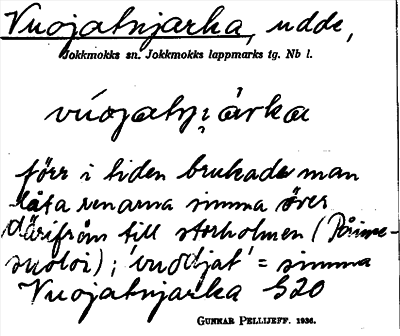 Vuojatnjarka, udde,
Jokkmokks sn. Jokkmokks lappmarks tg. Nb l.
vúojatnjárka
förr i tiden brukade man
låta renarna simma över
därifrån till storholmen (Pårime-
suoloi); 'vuodjat' = simma
Vuojatnjarka G20
GUNNAR PELLIJEFF. 1936.